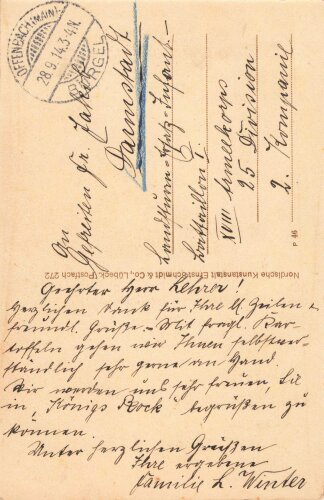 OFFENBACH (MAIN)
28.9.14.3-4N.
BÜRGEL
An
Gefreiten Fr.
Darmstadt
Landsturm-Ersatz-Infant.-
Battaillon I
XVIII Armeekorps
25 Division
2. Kompanie
P 46
Nordische Kunstanstalt Ernst Schmidt & Co., Lübeck. (Postfach 272
Geehrter Herr Lehrer!
Herzlichen Dank für Ihre l. Zeilen u.
freundl. Grüße. Mit fragl. Kar-
toffeln gehen wir Ihnen selbstver-
ständlich sehr gerne an Hand.
Wir werden uns sehr freuen, Sie
in „Königs Rock" begrüßen zu
können.
Unter herzlichen Grüßen
Ihre ergebene
Familie L. Winter